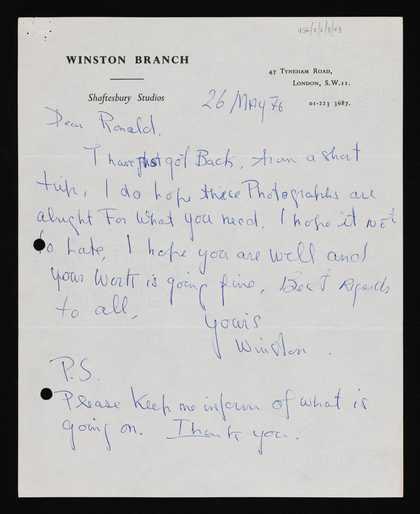 WINSTON BRANCH
47 TYNEHAM ROAD,
LONDON, S.W.11.
Shaftesbury Studios
01-223 3687.
26 MAY 76
Dear Ronald,
I have just got Back, from a short
trip, I do hope these Photographs are
alright For what you need. I hope it not
to Late, I hope you are well and
your work is going fine, Best Regards
to all,
Yours
Winston.
P.S.
Please Keep me inform of what is
going on. Thank you.